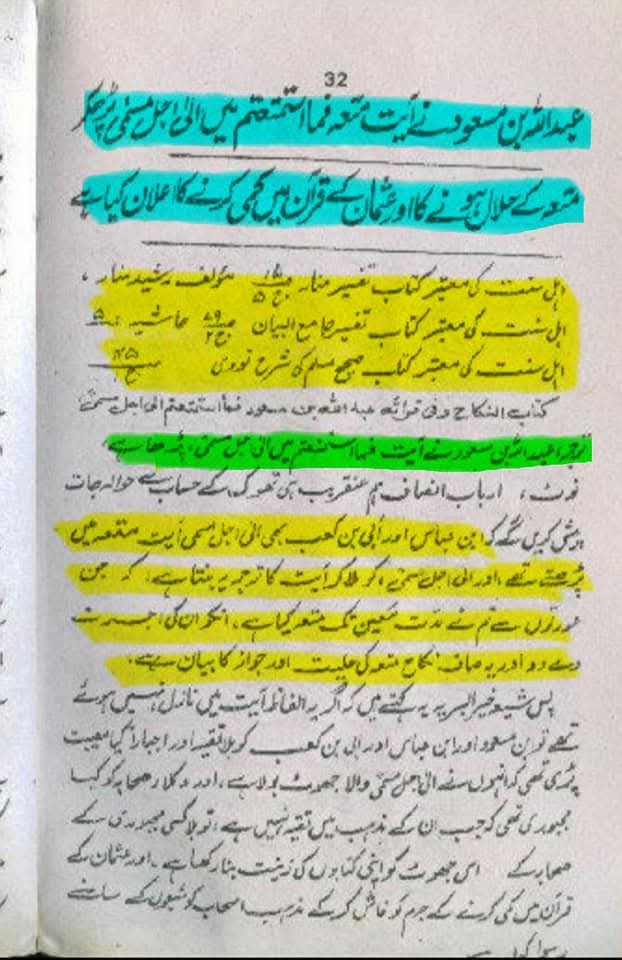 32
عبداللہ بن مسعود نے آیت متعہ فما استمتعتم میں الیٰ اجل مسمیٰ پڑھکر
متعہ کے حلال ہونے کا اور عثمان کے قرآن میں کمی کرنے کا اعلان کیا ہے
اہل سنت کی معتبر کتاب تفسیر منار ج ۵ مؤلف رشید منار ،
اہل سنت کی معتبر کتاب تفسیر جامع البیان حاشیہ
اہل سنت کی معتبر کتاب صحیح مسلم کی شرح نووی
کتاب النکاح وفی قرائۃ عبد اللہ بن مسعود فما استمتعتم الی اجل مسمیٰ
ترجمہ؛ عبد اللہ بن مسعود نے آیت فما استمتعتم میں الیٰ اجل مسمیٰ، پڑھا ہے،
نوٹ، ارباب انصاف ہم عنقریب ہی تھوک کے حساب سے حوالہ جات
پیش کریں گے کہ ابن عباس اور اُبی بن کعب بھی الی اجل مسمی آیت متعہ میں
پڑھتے تھے، اور الی اجل مسمیٰ، کو ملا کر آیت کا ترجمہ یہ بنتا ہے، کہ جن
عورتوں سے تم نے مدت معین تک متعہ کیا ہے، انکو ان کی اجرت
دے دو اور یہ صاف نکاح متعہ کی حلیت اور جواز کا بیان ہے،
پس شیعہ خیر البریہ یہ کہتے ہیں کہ اگر یہ الفاظ آیت میں نازل نہیں ہوئے
تھے تو ابن مسعود اور ابن عباس اور ابی بن کعب کو بلا تقیہ اور اجبار کیا مصیبت
پڑی تھی کہ انہوں نے الی اجل مسمیٰ والا جھوٹ بولا ہے، اور وکلاء صحابہ کو کیا
مجبوری تھی کہ جب ان کے مذہب میں تقیہ نہیں ہے، تو بلا کسی مجبوری کے
صحابہ کے اس جھوٹ کو اپنی کتابوں کی زینت بنا رکھا ہے ۔ اور عثمان کے
قرآن میں کمی کرنے کے جرم کو فاش کر کے مذہب اصحاب کو شیعوں کے سامنے
رسوا کیا ہے